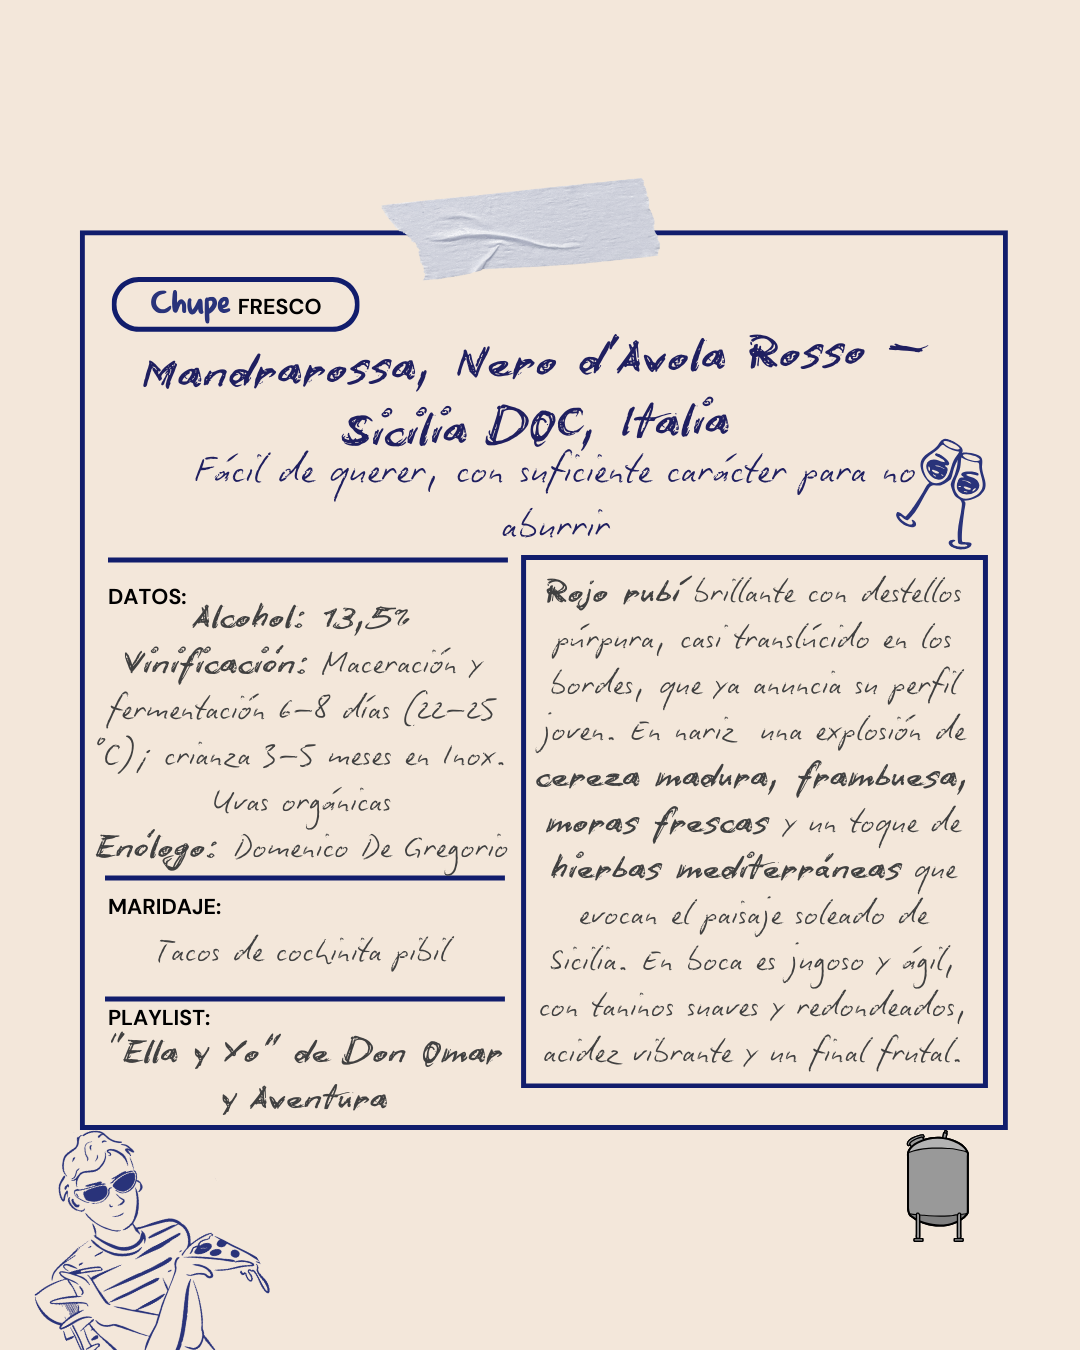 Chupe FRESCO
Mandrarossa, Nero d'Avola Rosso –
Sicilia DOC, Italia
Fácil de querer, con suficiente carácter para no
aburrir
DATOS:
Alcohol: 13,5%
Vinificación: Maceración y
fermentación 6–8 días (22–25
°C); crianza 3–5 meses en Inox.
Uvas orgánicas
Enólogo: Domenico De Gregorio
MARIDAJE:
Tacos de cochinita pibil
PLAYLIST:
"Ella y Yo" de Don Omar
y Aventura
Rojo rubí brillante con destellos
púrpura, casi translúcido en los
bordes, que ya anuncia su perfil
joven. En nariz una explosión de
cereza madura, frambuesa,
moras frescas y un toque de
hierbas mediterráneas que
evocan el paisaje soleado de
Sicilia. En boca es jugoso y ágil,
con taninos suaves y redondeados,
acidez vibrante y un final frutal.